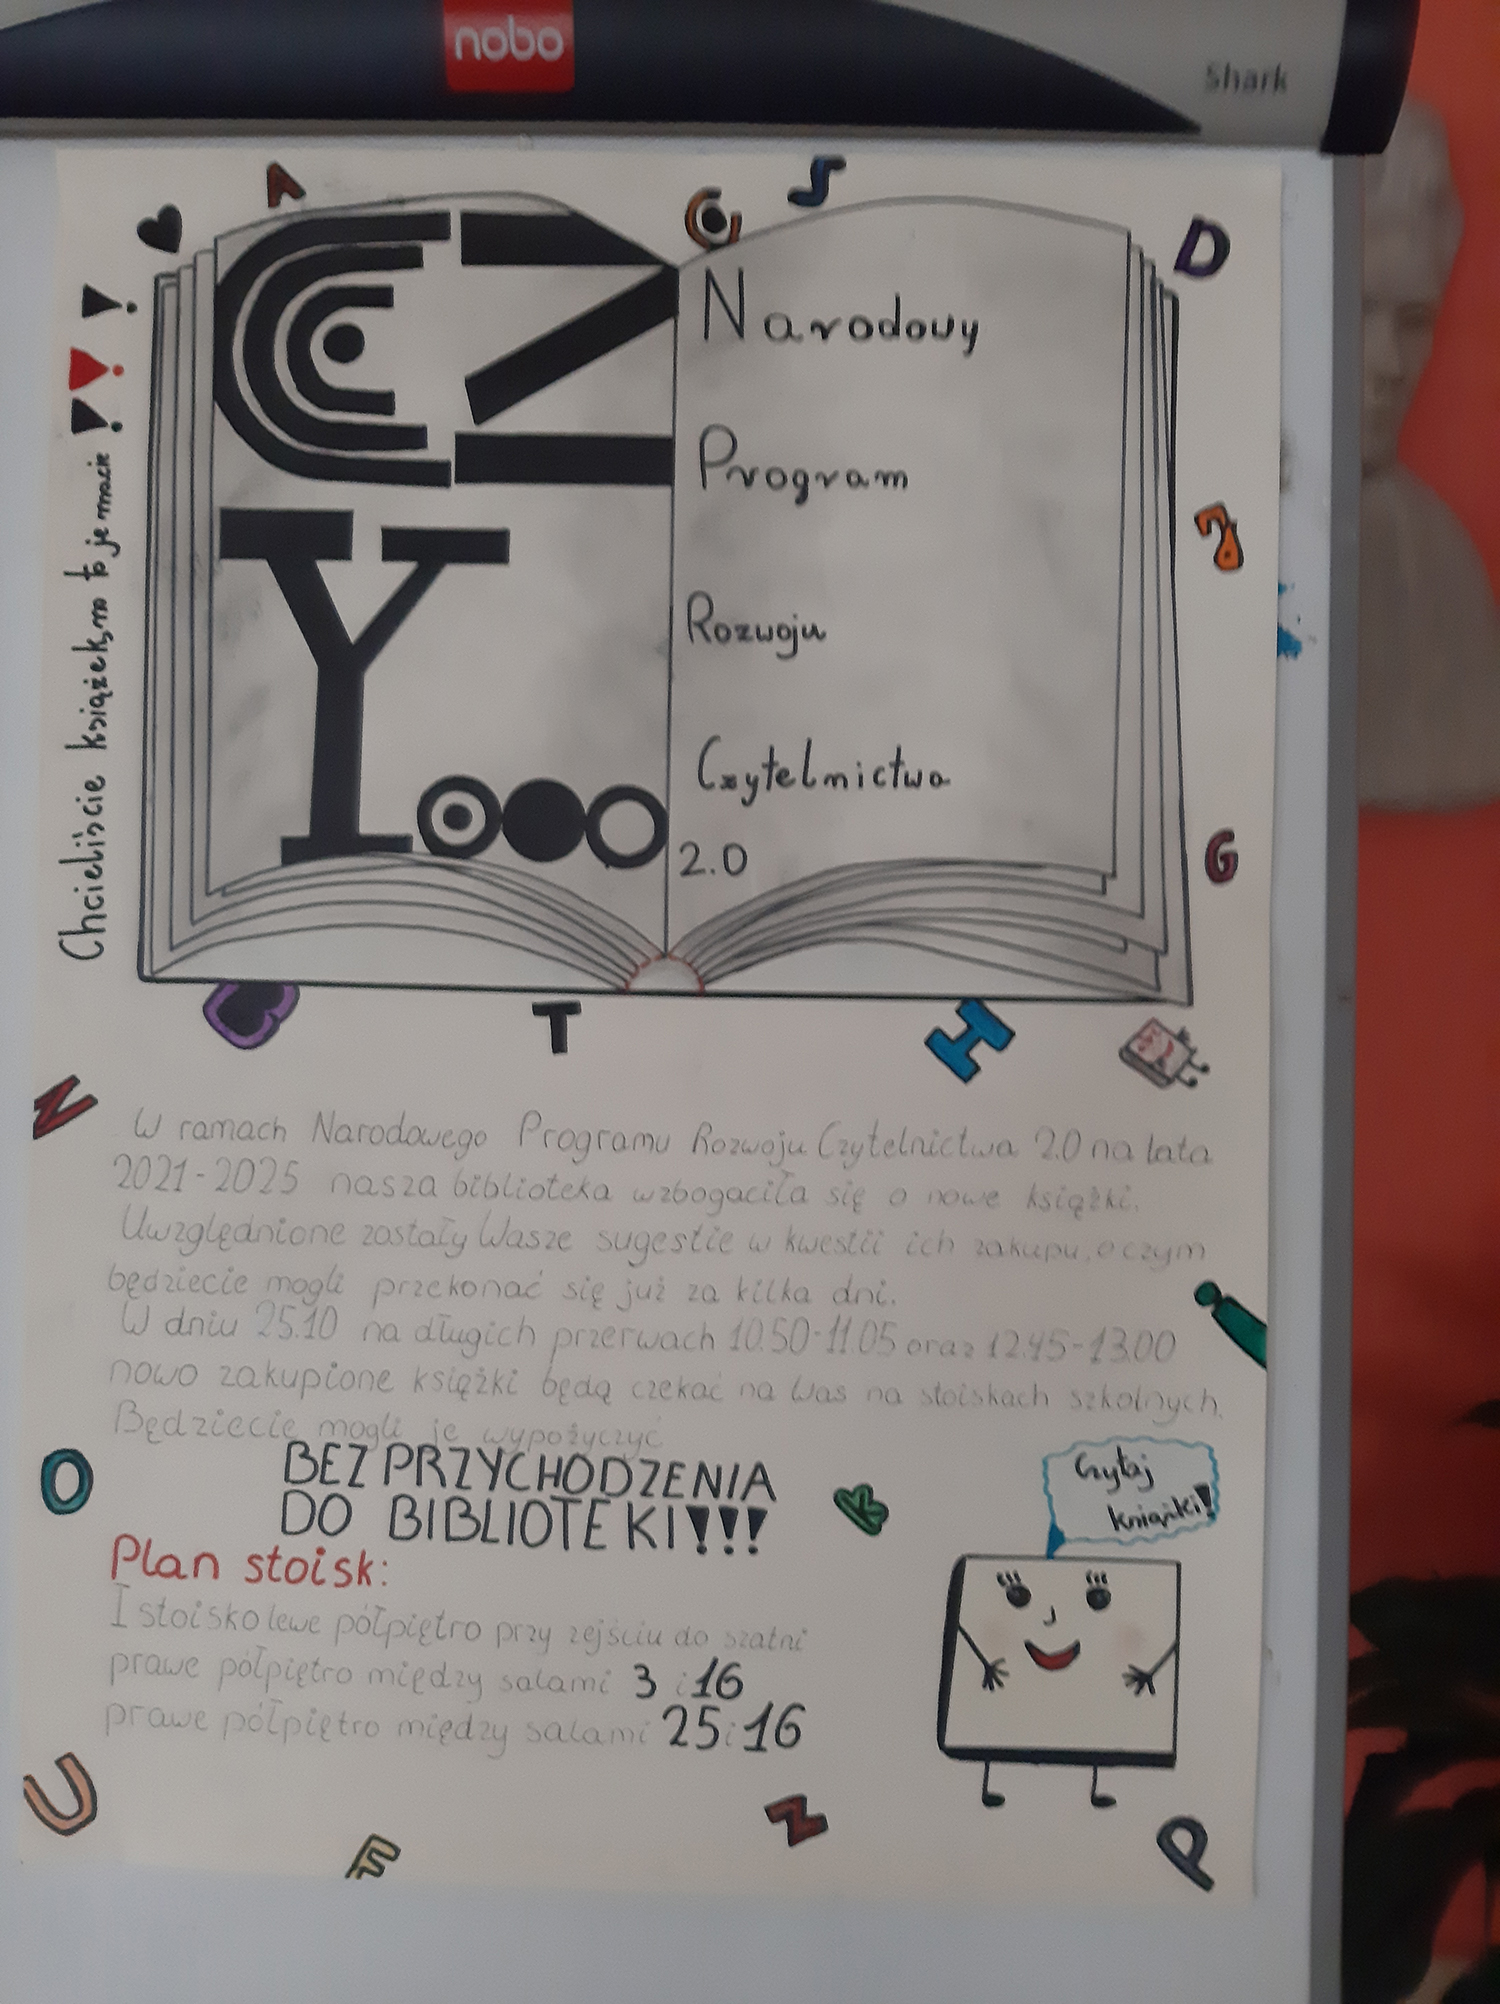 nobo
Shark
A
C
S
D
Chcieliście książek, no to je macie!!!
CZ
Y
Narodowy
Program
Rozwoju
Czytelnictwa
2.0
?
G
B
T
H
N
W ramach Narodowego Programu Rozwoju Czytelnictwa 2.0 na lata
2021-2025 nasza biblioteka wzbogaciła się o nowe książki.
Uwzględnione zostały Wasze sugestie w kwestii ich zakupu, o czym
będziecie mogli przekonać się już za kilka dni.
W dniu 25.10 na długich przerwach 10.50-11.05 oraz 12.45-13.00
nowo zakupione książki będą czekać na Was na stoiskach szkolnych.
Będziecie mogli je wypożyczyć
BEZ PRZYCHODZENIA
DO BIBLIOTEKI!!!
O
K
Czytaj
książki!
Plan stoisk:
I stoisko lewe półpiętro przy zejściu do szatni
prawe półpiętro między salami 3 i 16
prawe półpiętro między salami 25 i 16
U
F
Z
P